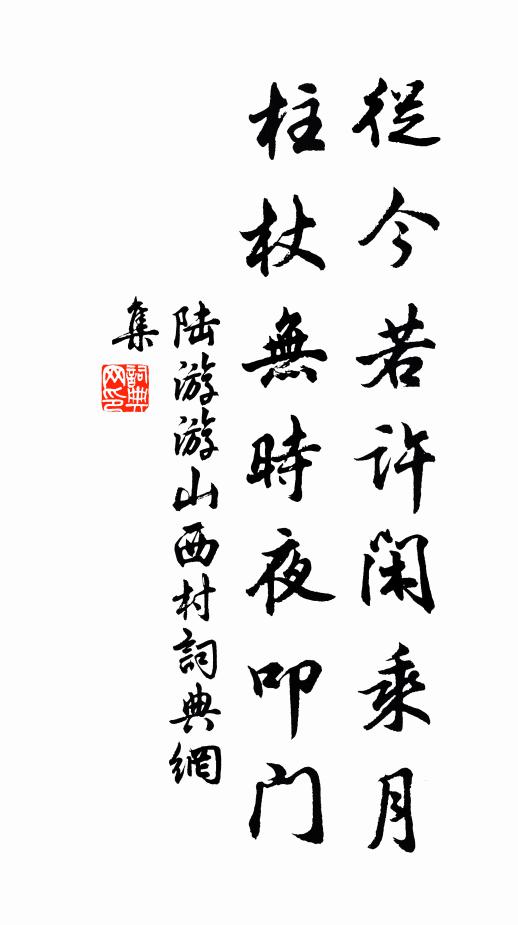 從今若許閑乘月
柱杖無時夜叩门
陆游游山西村詞典網
集
詞典
网印